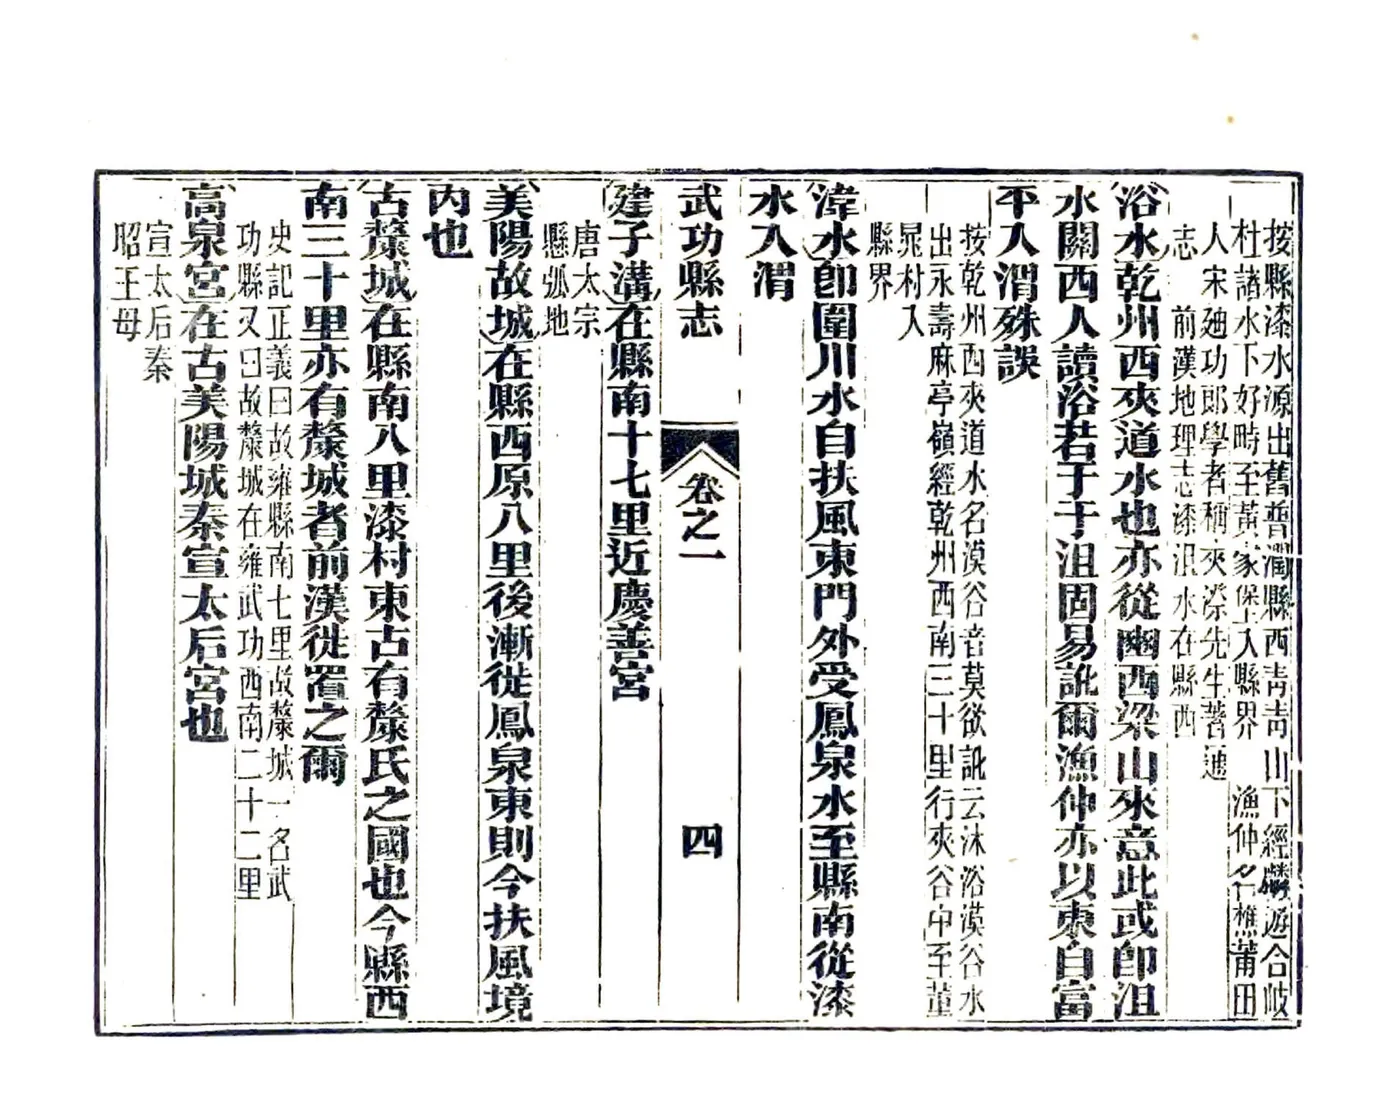 按縣漆水源出舊普潤縣西青青山下經麟遊合岐
杜諸水下好畤至黃家堡入縣界　漁仲名樵莆田
人宋廸功郎學者稱夾漈先生著通
志　前漢地理志漆沮水在縣西
浴水乾州西夾道水也亦從豳西梁山來意此或卽沮
水關西人讀浴若于于沮固易訛爾漁仲亦以東自富
平入渭殊誤
按乾州西夾道水名漠谷音莫欲訛云沐浴漠谷水
出永壽麻亭嶺經乾州西南三十里行夾谷中至董
晁村入
縣界
湋水卽圍川水自扶風東門外受鳳泉水至縣南從漆
水入渭
武功縣志
卷之一
四
建子溝在縣南十七里近慶善宮
唐太宗
懸弧地
美陽故城在縣西原八里後漸徙鳳泉東則今扶風境
內也
古斄城在縣南八里漆村東古有斄氏之國也今縣西
南三十里亦有斄城者前漢徙置之爾
史記正義曰故雍縣南七里故斄城一名武
功縣又曰故斄城在雍武功西南二十二里
高泉宮在古美陽城秦宣太后宮也
宣太后秦
昭王母